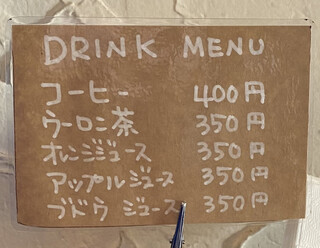 DRINK MENU
コーヒー 400円
ウーロン茶 350円
オレンジジュース 350円
アップルジュース 350円
ブドウジュース 350円